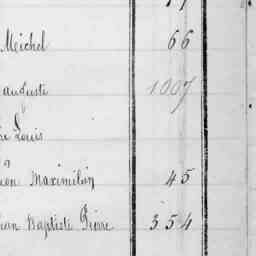 Michel 66
auguste 1007
Louis
Maximilien 45
Baptiste Pierre 354